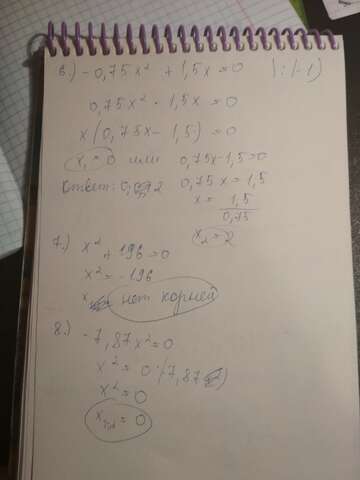 6.) -0,75x² + 1,5x = 0 |:(-1)
0,75x² - 1,5x = 0
x(0,75x - 1,5) = 0
x₁ = 0 или 0,75x - 1,5 = 0
Ответ: 0, 2 0,75x = 1,5
x = 1,5
0,75
x₂ = 2
7.) x² + 196 = 0
x² = -196
x нет корней
8.) -7,87x² = 0
x² = 0:(-7,87)
x² = 0
= 0